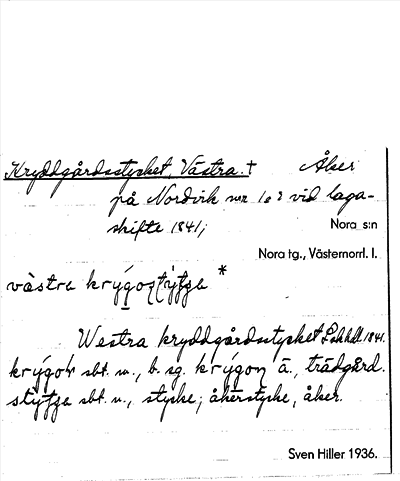 Kryddgårdsstycket, Västra. † Åker
på Nordvik nr 1 o 2 vid laga-
skifte 1841;
Nora s:n
Nora tg., Västernorrl. l.
västra
Westra kryddgårdsstycket Lskhdl. 1841.
sbt. m., b. sg. ä., trädgård.
sbt. n., stycke; åkerstycke, åker.
Sven Hiller 1936.